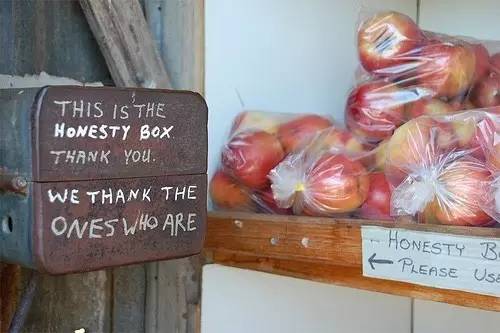 THIS IS THE
HONESTY BOX
THANK YOU.
WE THANK THE
ONES WHO ARE
HONESTY
← PLEASE USE